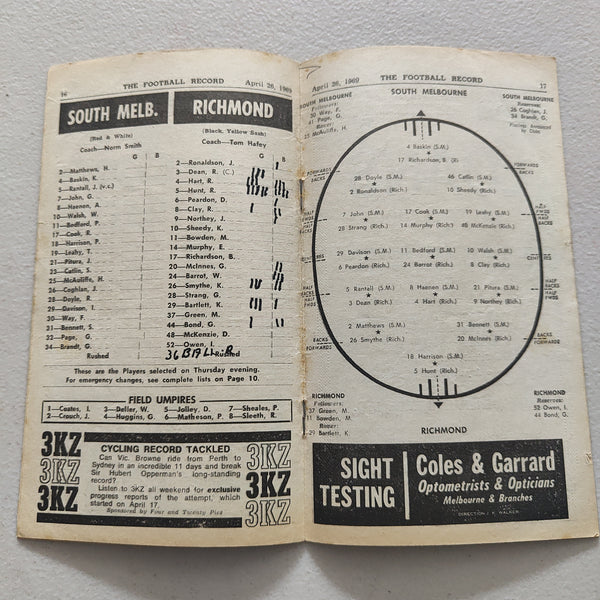 16 THE FOOTBALL RECORD April 26, 1969
SOUTH MELB. RICHMOND
(Red & White) (Black, Yellow Sash)
Coach—Norm Smith Coach—Tom Hafey
G B G B
2—Matthews, H.
4—Baskin, K.
5—Rantall, J (v.c.)
7—John, G.
8—Haenen, A.
10—Walsh, W.
11—Bedford, P.
17—Cook, R.
18—Harrison, P.
19—Leahy, T.
21—Pitura, J.
22—Catlin, S.
25—McAuliffe, H.
26—Coghlan, J.
28—Doyle, R.
29—Davison, I.
30—Way, F.
31—Bennett, S.
32—Page, G.
34—Brandt, G.
Rushed
2—Ronaldson, J.
3—Dean, R. (C.)
4—Hart, R.
5—Hunt, R.
6—Peardon, D.
8—Clay, R.
9—Northey, J.
10—Sheedy, K.
11—Bowden, M.
14—Murphy, E.
17—Richardson, B.
20—McInnes, G.
24—Barrot, W.
26—Smythe, K.
28—Strang, G.
29—Bartlett, K.
37—Green, M.
44—Bond, G.
48—McKenzie, D.
52—Owen, I.
Rushed
These are the Players selected on Thursday evening.
For emergency changes, see complete lists on Page 10.
FIELD UMPIRES
1—Coates, I. 3—Deller, W. 5—Jolley, D. 7—Sheales, P.
2—Crouch, J. 4—Huggins, G. 6—Matheson, P. 8—Sleeth, R.
3KZ
3KZ
3KZ
CYCLING RECORD TACKLED
Can Vic. Browne ride from Perth to
Sydney in an incredible 11 days and break
Sir Hubert Opperman's long-standing
record?
Listen to 3KZ all weekend for exclusive
progress reports of the attempt, which
started on April 17.
Sponsored by Four and Twenty Pies
3KZ
3KZ
3KZ
April 26, 1969 THE FOOTBALL RECORD 17
SOUTH MELBOURNE
SOUTH MELBOURNE
30 Way, F.
Page, G.
Rover:
25 McAuliffe, H.
SOUTH MELBOURNE
Reserves:
26 Coghlan, J.
34 Brandt, G.
4 Baskin (S.M.)
17 Richardson, B. (R)
FORWARDS
BACKS
28 Doyle (S.M.) 22 Catlin (S.M.)
2 Ronaldson (Rich.) 10 Sheedy (Rich.)
7 John (S.M.) 17 Cook (S.M.) 19 Leahy (S.M.)
28 Strang (Rich.) 14 Murphy (Rich.) 48 McKenzie (Rich.)
29 Davison (S.M.) 11 Bedford (S.M.) 10 Walsh (S.M.)
6 Peardon (Rich.) 24 Barrot (Rich.) 8 Clay (Rich.)
CENTRES
5 Rantall (S.M.) 8 Haenen (S.M.) 21 Pitura (S.M.)
3 Dean (Rich.) 4 Hart (Rich.) 9 Northey (Rich.)
2 Matthews (S.M.) 31 Bennett (S.M.)
26 Smythe (Rich.) 20 McInnes (Rich.)
BACKS
FORWARDS
18 Harrison (S.M.)
5 Hunt (Rich.)
RICHMOND
Followers:
37 Green, M.
11 Bowden, M.
Rover:
29 Bartlett, K.
RICHMOND
Reserves:
52 Owen, I.
44 Bond, G.
RICHMOND
SIGHT
TESTING
Coles & Garrard
Optometrists & Opticians
Melbourne & Branches
DIRECTION J. K. WALKER